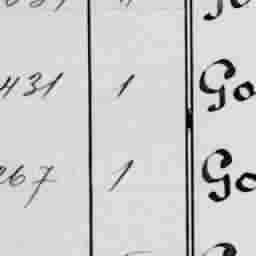 431 1 Go
267 1 Go